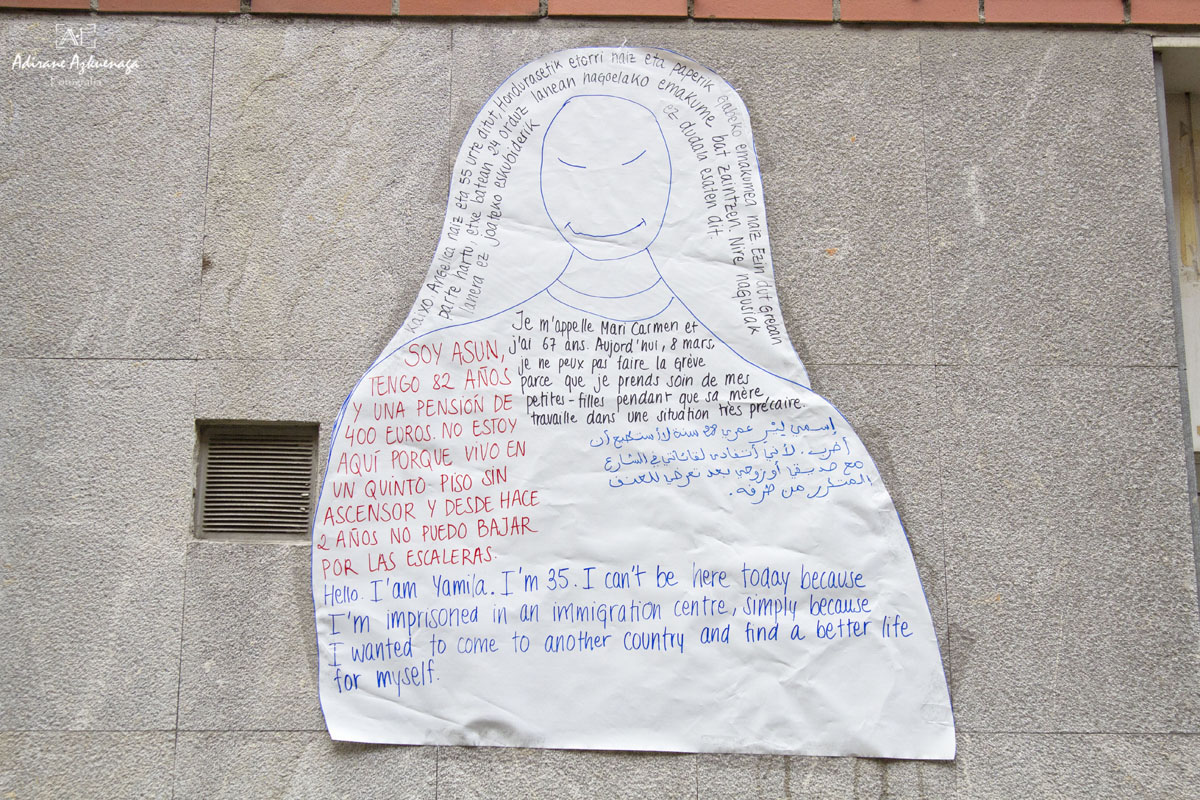 Adirane Azkuenaga
Kaixo Angelica naiz eta 55 urte ditut, Hondurasetik etorri naiz eta paperik gabeko emakumea naiz. Ezin dut Greban
parte hartu, etxe batean 24 orduz lanean nagoelako emakume bat zaintzen. Nire nagusiak
lanera ez joateko eskubiderik ez dudala esaten dit.
Je m'appelle Mari Carmen et
j'ai 67 ans. Aujord'hui, 8 mars,
je ne peux pas faire la Grève
parce que je prends soin de mes
petites-filles pendant que sa mère,
travaille dans une situation très précaire.
SOY ASUN,
TENGO 82 AÑOS
Y UNA PENSIÓN DE
400 EUROS. NO ESTOY
AQUÍ PORQUE VIVO EN
UN QUINTO PISO SIN
ASCENSOR Y DESDE HACE
2 AÑOS NO PUEDO BAJAR
POR LAS ESCALERAS.
إسمي عمري 28 سنة لا أستطيع أن
أضرب. لأني أتفادى في الشارع
مع صديقي أو زوجي بعد تعرضي للعنف
المتكرر من طرفه.
Hello. I'am Yamila. I'm 35. I can't be here today because
I'm imprisoned in an immigration centre, simply because
I wanted to come to another country and find a better life
for myself.